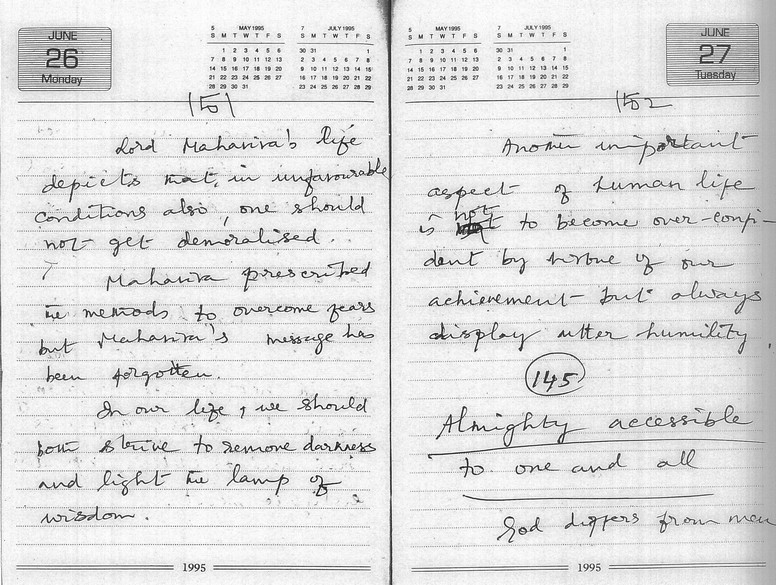 JUNE
26
Monday
5 MAY 1995
S M T W T F S
1 2 3 4 5 6
7 8 9 10 11 12 13
14 15 16 17 18 19 20
21 22 23 24 25 26 27
28 29 30 31
7 JULY 1995
S M T W T F S
30 31 1
2 3 4 5 6 7 8
9 10 11 12 13 14 15
16 17 18 19 20 21 22
23 24 25 26 27 28 29
151
Lord Mahavira's life
depicts that, in unfavourable
conditions also, one should
not get demoralised.
Mahavira prescribed
the methods to overcome fears
but Mahavira's message has
been forgotten.
In our life, we should
both strive to remove darkness
and light the lamp of
wisdom.
1995
5 MAY 1995
S M T W T F S
1 2 3 4 5 6
7 8 9 10 11 12 13
14 15 16 17 18 19 20
21 22 23 24 25 26 27
28 29 30 31
7 JULY 1995
S M T W T F S
30 31 1
2 3 4 5 6 7 8
9 10 11 12 13 14 15
16 17 18 19 20 21 22
23 24 25 26 27 28 29
JUNE
27
Tuesday
152
Another important
aspect of human life
is not to become over-confi-
dent by virtue of our
achievement but always
display utter humility.
145
Almighty accessible
to one and all
God differs from men
1995